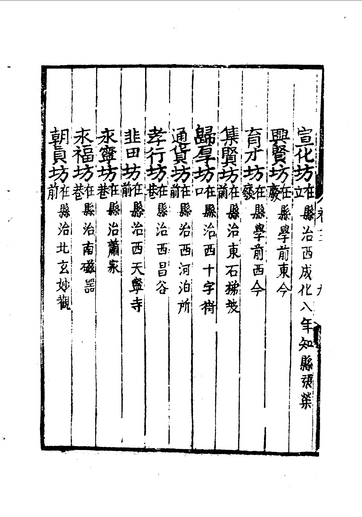 宣化坊在縣治西成化八年知縣張榮立
興賢坊在縣學前東今廢
育才坊在縣學前西今廢
集賢坊在縣治東石梯坡前
歸厚坊在縣治西十字街口
通貨坊在縣治西河泊所前
孝行坊在縣治西昌谷巷
韭田坊在縣治西天寧寺前
永寧坊在縣治蕭家巷
永福坊在縣治南磁器巷
朝眞坊在縣治北玄妙觀前